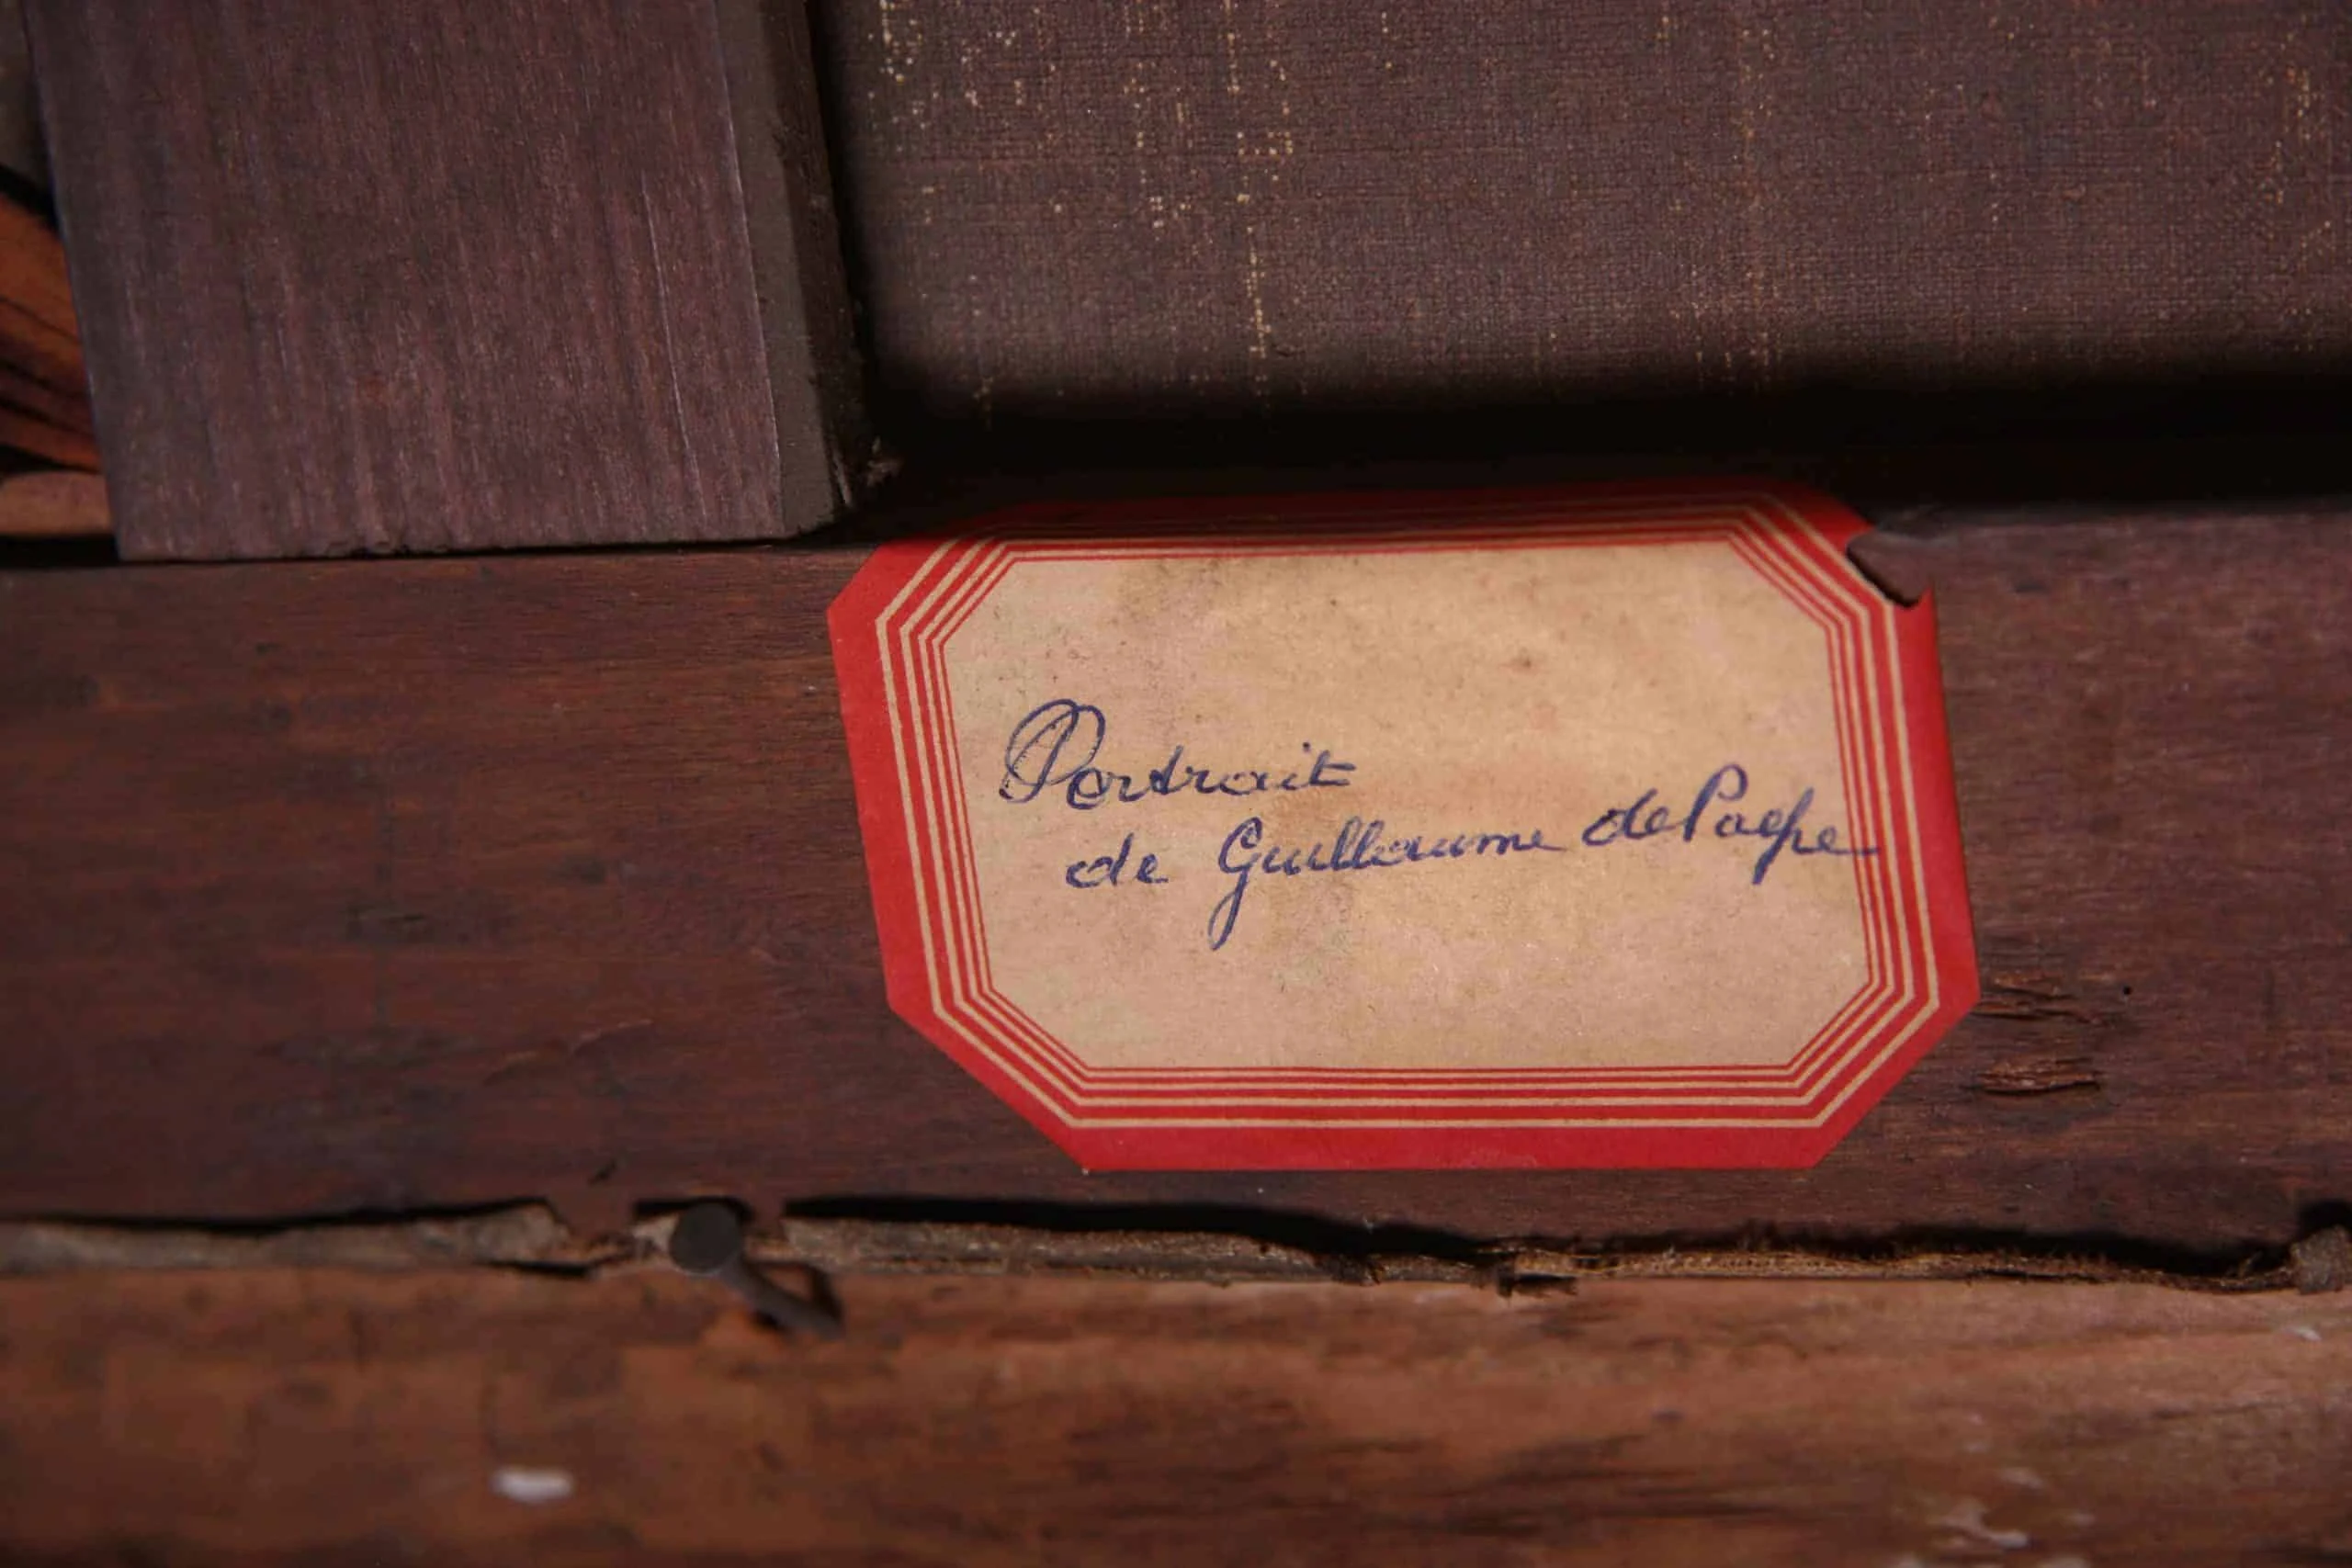 Portrait
de Guillaume de Paepe